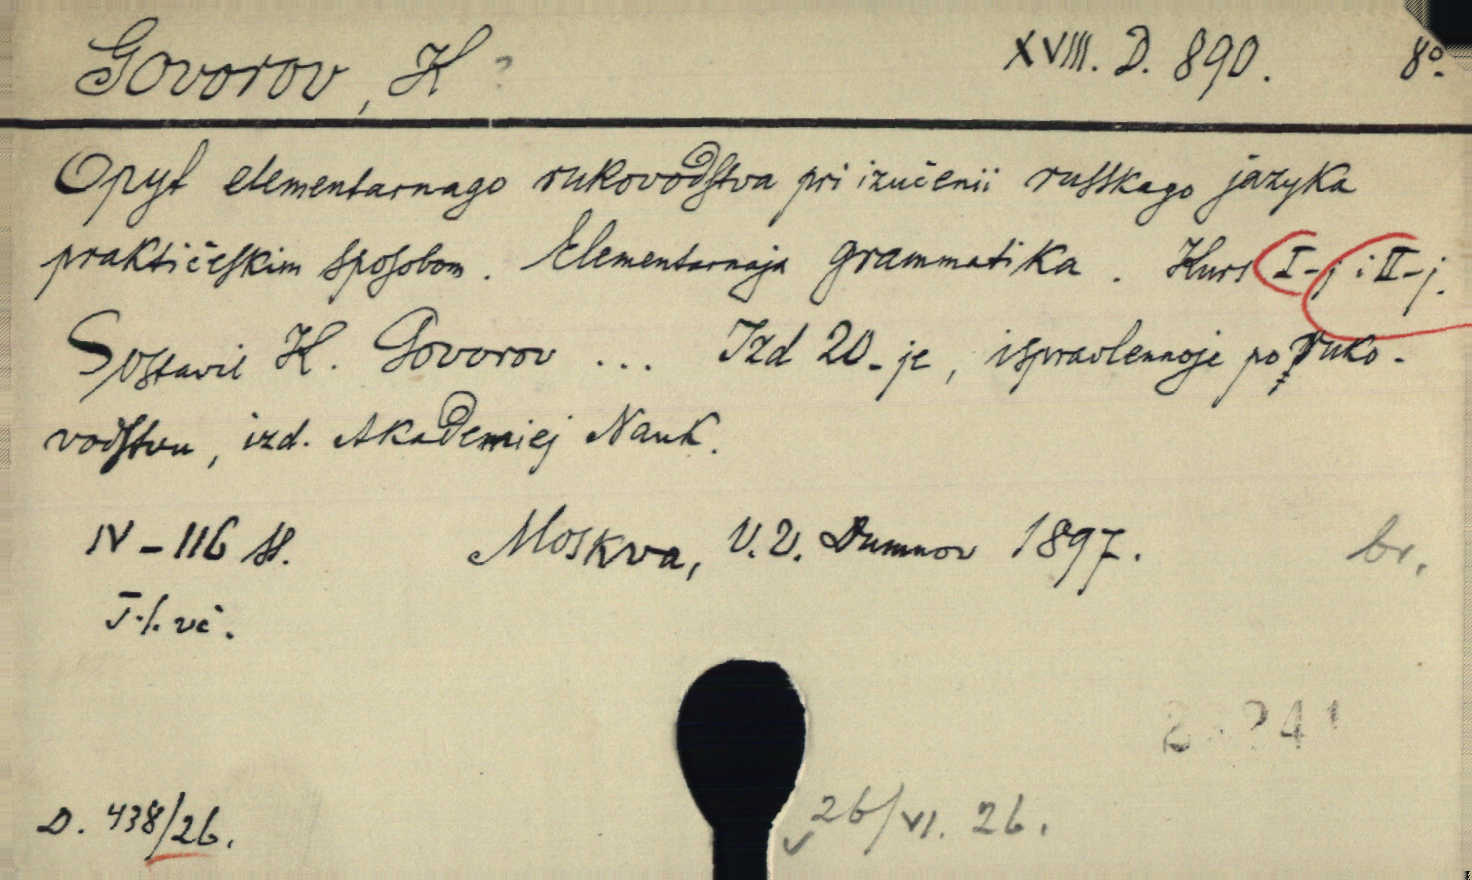 Govorov, K ?
XVIII. D. 890. 8°.
Opyt elementarnago rukovodstva pri izučenii russkago jazyka
praktičeskim sposobom. Elementarnaja grammatika. Kurs I-j i II-j.
Sostavil K. Govorov ... Izd 20-je, ispravlennoje po ruko-
vodstvu, izd. Akademiej Nauk.
IV - 116 st. Moskva, V.V. Dumnov 1897. br.
D. 438/26.
26/VI. 26.